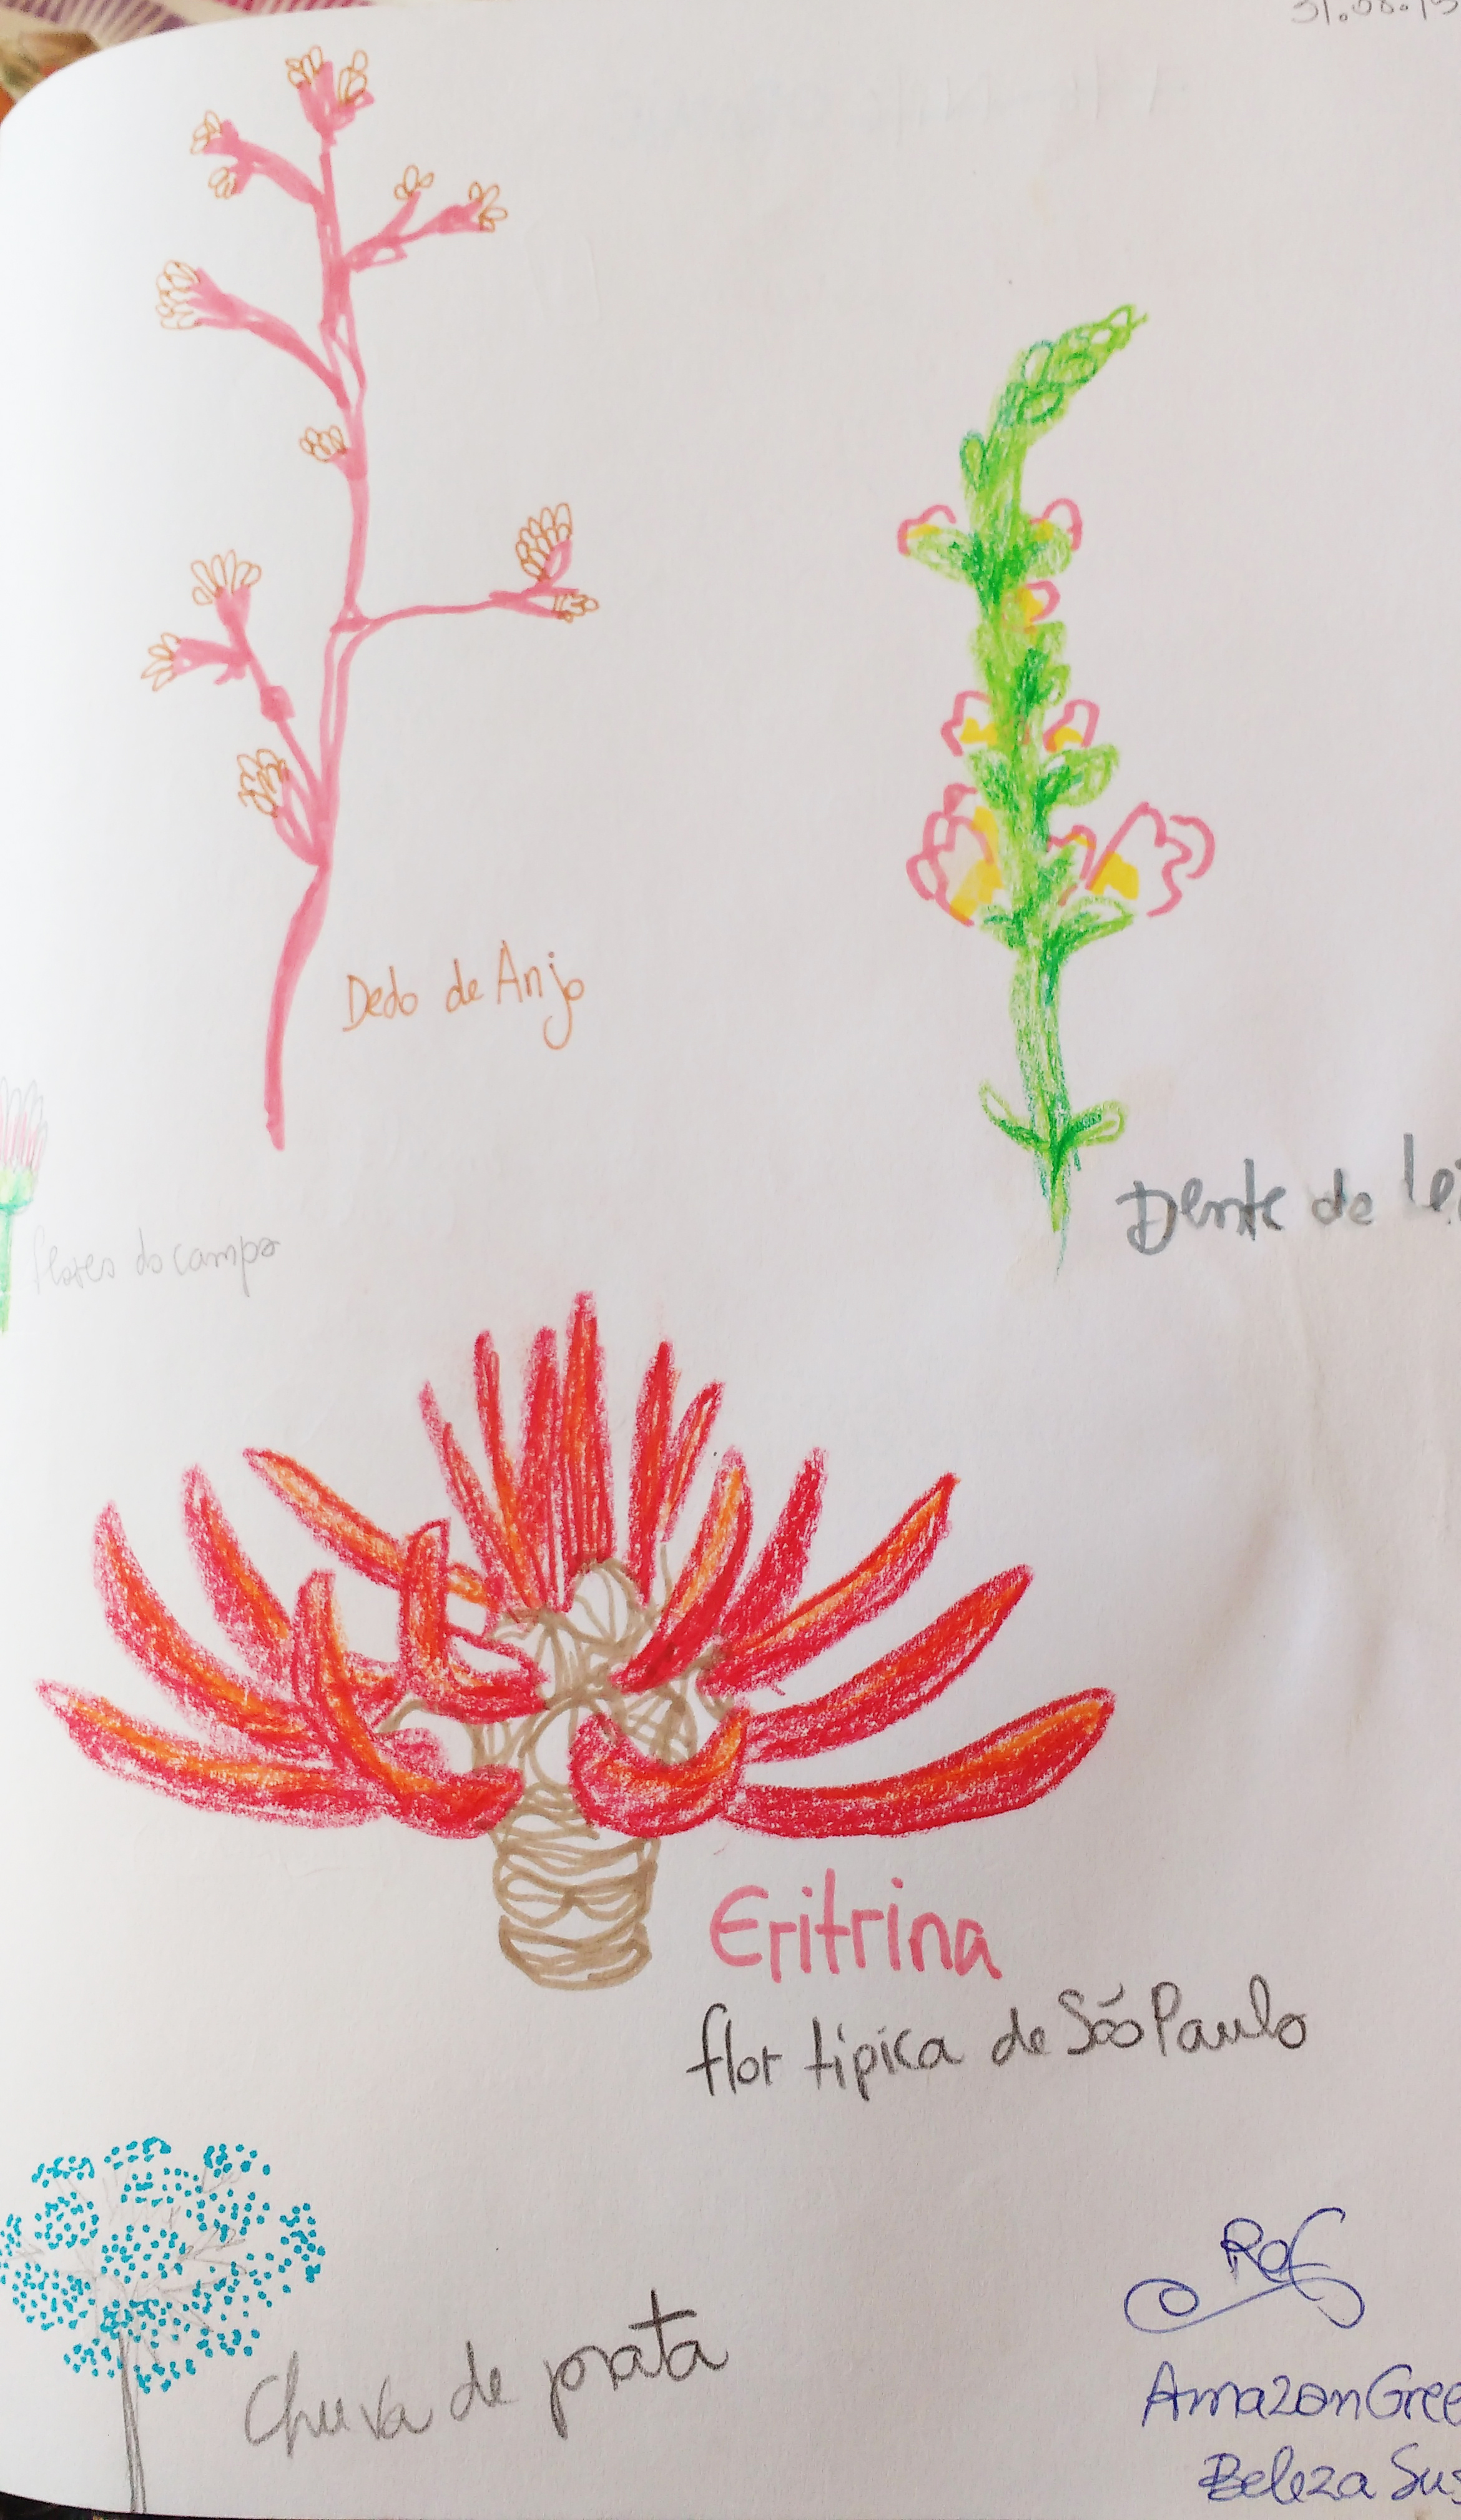 31.08.15
Dedo de Anjo
Dente de lei
flores do campo
Eritrina
flor típica de São Paulo
Chuva de prata
AmazonGree
Beleza Sus